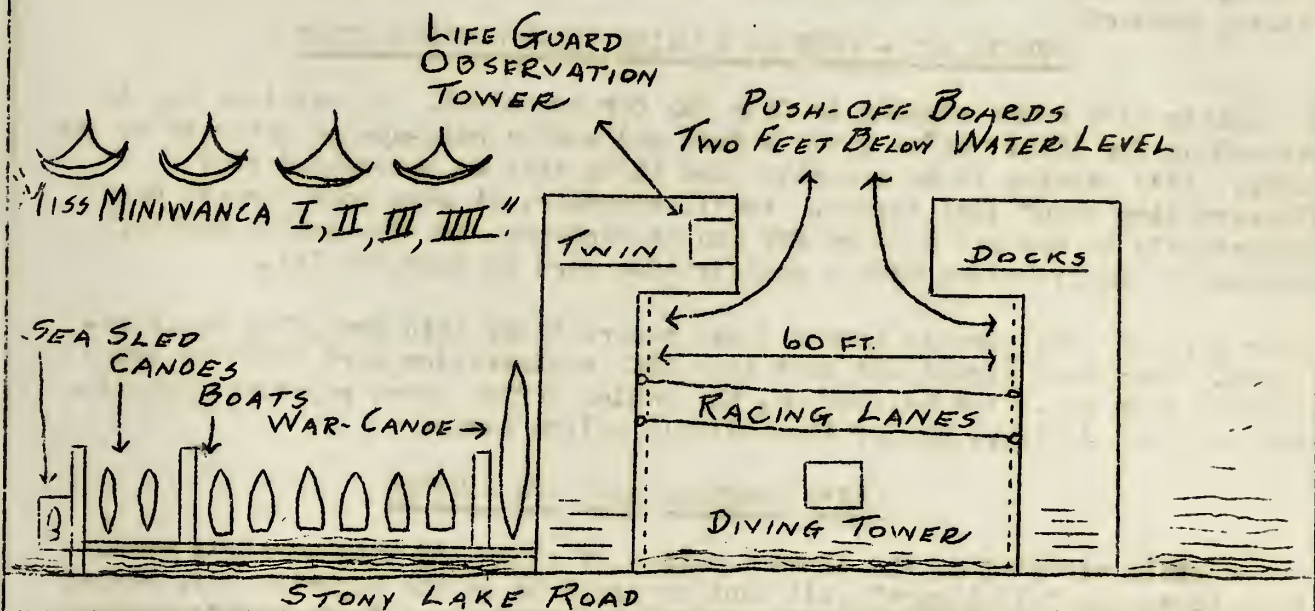 LIFE GUARD
OBSERVATION
TOWER
PUSH-OFF BOARDS
TWO FEET BELOW WATER LEVEL
"MISS MINIWANCA I, II, III, IIII."
TWIN
DOCKS
SEA SLED
CANOES
BOATS
WAR-CANOE
60 FT.
RACING LANES
DIVING TOWER
STONY LAKE ROAD